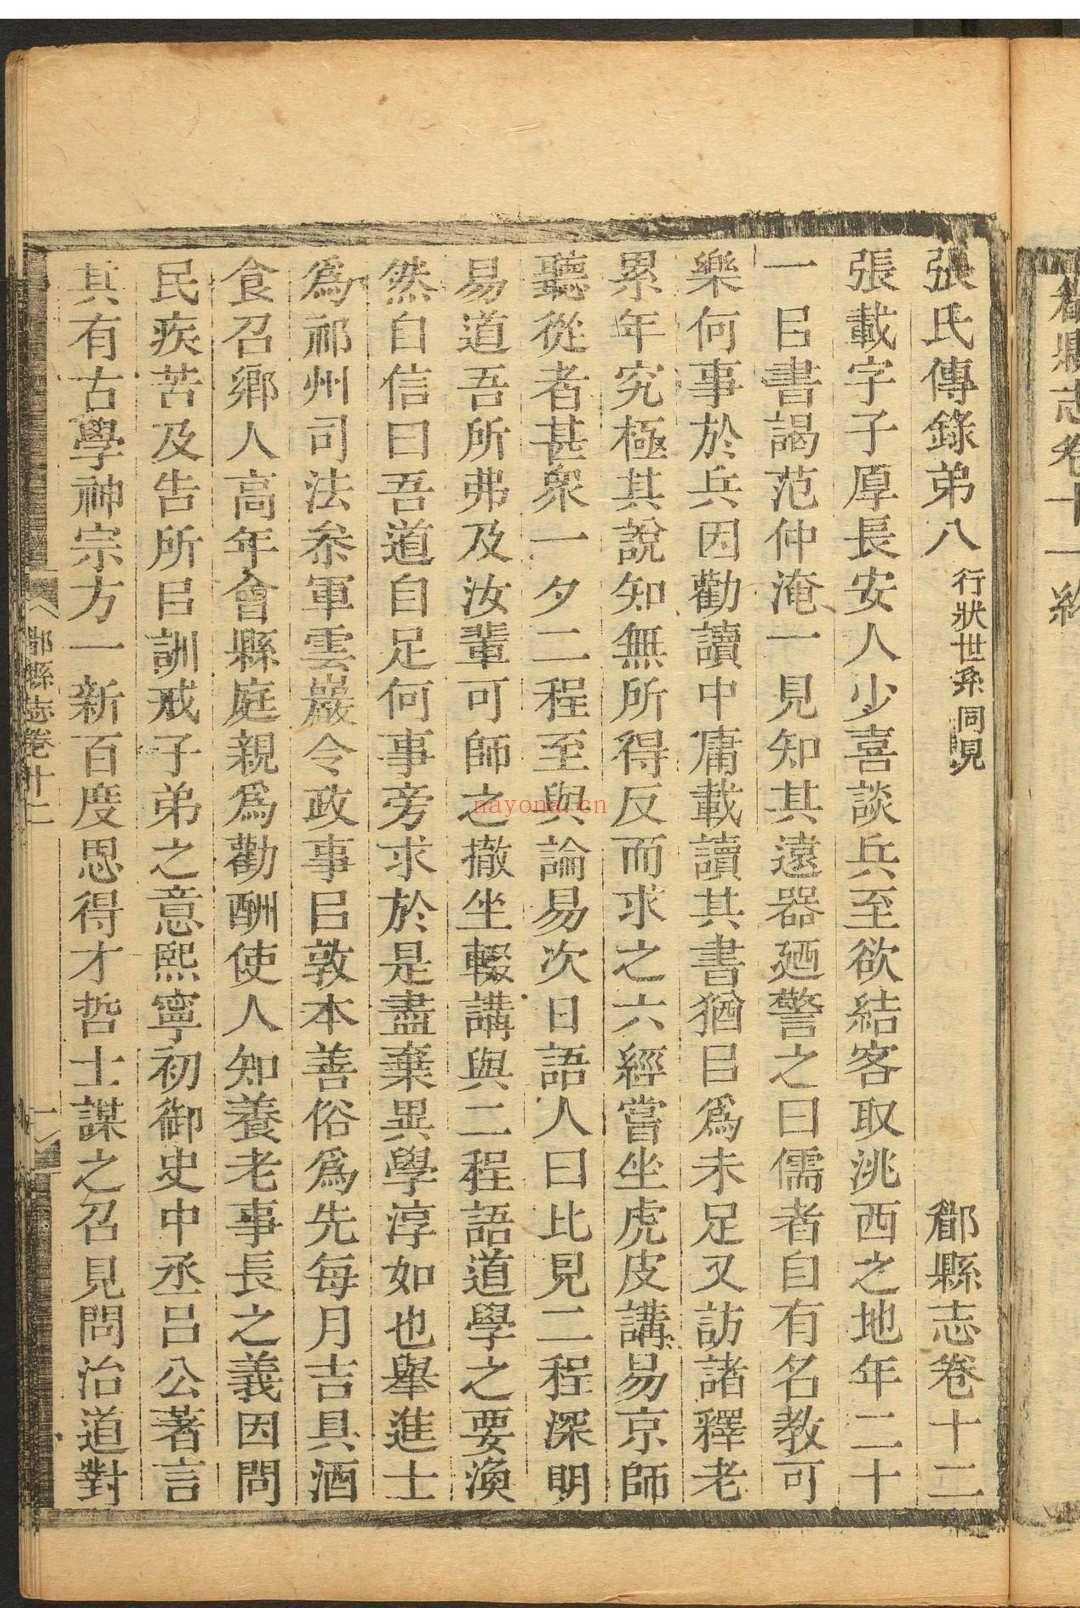 郿縣志卷十一終
張氏傳錄弟八 行狀世系同見 郿縣志卷十二
張載字子厚長安人少喜談兵至欲結客取洮西之地年二十
一㠯書謁范仲淹一見知其遠器廼警之曰儒者自有名教可
樂何事於兵因勸讀中庸載讀其書猶㠯爲未足又訪諸釋老
累年究極其說知無所得反而求之六經嘗坐虎皮講易京師
聽從者甚衆一夕二程至與論易次日語人曰比見二程深明
易道吾所弗及汝輩可師之撤坐輟講與二程語道學之要渙
然自信曰吾道自足何事旁求於是盡棄異學淳如也舉進士
爲祁州司法叅軍雲巖令政事㠯敦本善俗爲先每月吉具酒
食召鄉人高年會縣庭親爲勸酬使人知養老事長之義因問
民疾苦及告所㠯訓戒子弟之意熙寧初御史中丞呂公著言
其有古學神宗方一新百度思得才哲士謀之召見問治道對
郿縣志卷十二 一
nayona.cn